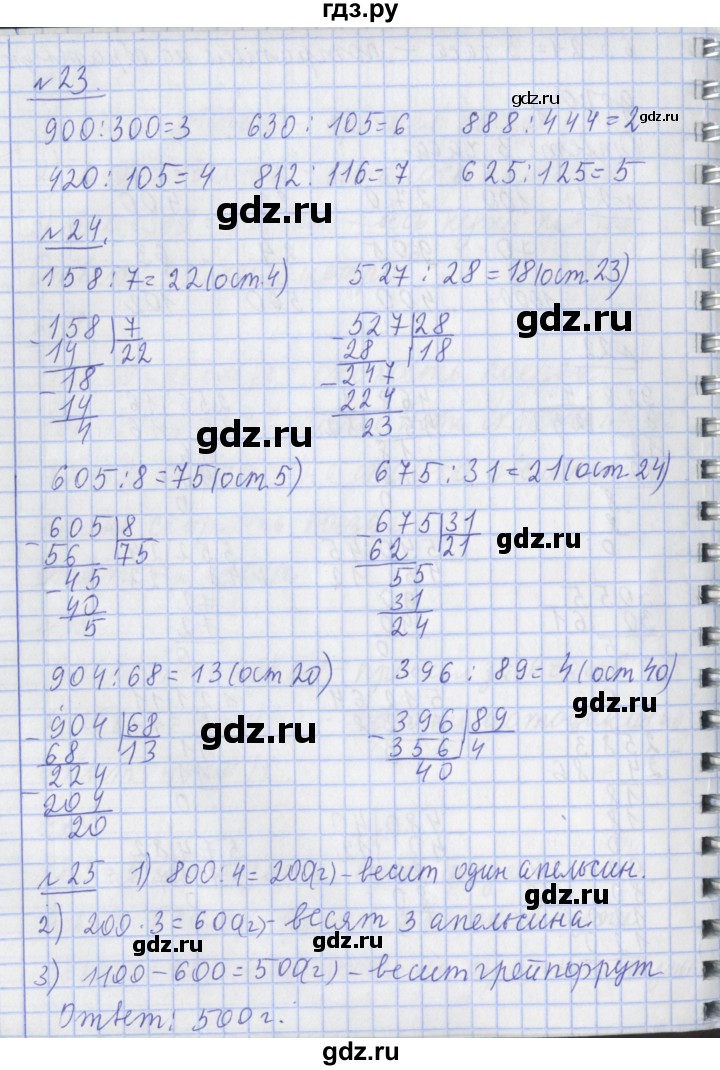 гдз.ру
№23.
900:300=3 630:105=6 888:444=2
420:105=4 812:116=7 625:125=5
№24.
158:7=22(ост.4) 527:28=18(ост.23)
158 7
14 22
18
14
4
527 28
28 18
247
224
23
605:8=75(ост.5) 675:31=21(ост.24)
605 8
56 75
45
40
5
675 31
62 21
55
31
24
904:68=13(ост 20) 396:89=4(ост 40)
904 68
68 13
224
204
20
396 89
356 4
40
№25 1) 800:4=200(г)-весит один апельсин.
2) 200·3=600(г)-весят 3 апельсина
3) 1100-600=500(г)-весит грейпфрут
Ответ: 500г.
gdz.ru
gdz.ru
gdz.ru
gdz.ru
gdz.ru
gdz.ru
gdz.ru
gdz.ru
gdz.ru
gdz.ru
gdz.ru
gdz.ru
gdz.ru